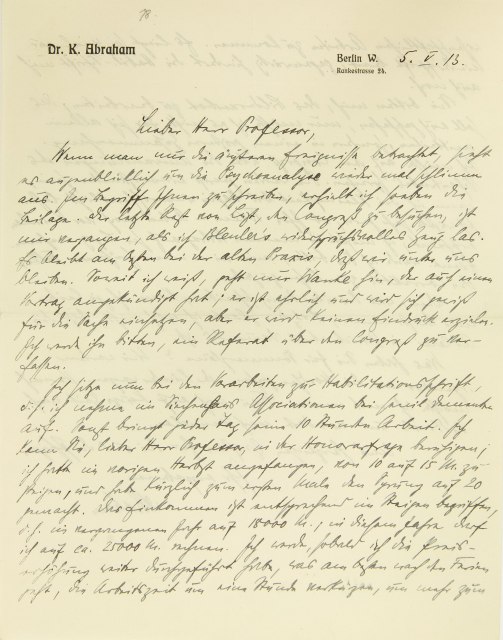 98.
Dr. K. Abraham
Berlin W. 5. V. 13.
Rankestrasse 24.
Lieber Herr Professor,
Wenn man nur die äußeren Ereignisse betrachtet, sieht
es augenblicklich um die Psychoanalyse wieder mal schlimm
aus. Im Begriff, Ihnen zu schreiben, erhielt ich soeben die
Beilage. Der letzte Rest von Lust, den Congreß zu besuchen, ist
mir vergangen, als ich Bleulers widerspruchsvolles Zeug las.
Es bleibt am besten bei der alten Praxis, daß wir unter uns
bleiben. Soweit ich weiß, geht nur Wanke hin, der auch einen
Vortrag angekündigt hat; er ist ehrlich und wird sich gewiß
für die Sache einsetzen, aber er wird keinen Eindruck erzielen.
Ich werde ihn bitten, ein Referat über den Congreß zu ver-
fassen.
Ich sitze nun bei den Vorarbeiten zur Habilitationsschrift,
d. h. ich nehme im Siechenhaus Associationen bei senil dementen
auf. Sonst bringt jeder Tag seine 10 Stunden Arbeit. Ich
kann Sie, lieber Herr Professor, in der Honorarfrage beruhigen;
ich hatte im vorigen Herbst angefangen, von 10 auf 15 M. zu
steigen, und habe kürzlich zum ersten Male den Sprung auf 20
gemacht. Das Einkommen ist entsprechend im Steigen begriffen,
d. h. im vergangenen Jahr auf 18000 M.; in diesem Jahre darf
ich auf ca. 25000 M. rechnen. Ich werde, sobald ich die Preis-
erhöhung weiter durchgeführt habe, was am besten nach den Ferien
geht, die Arbeitszeit um eine Stunde verkürzen, um mehr zum